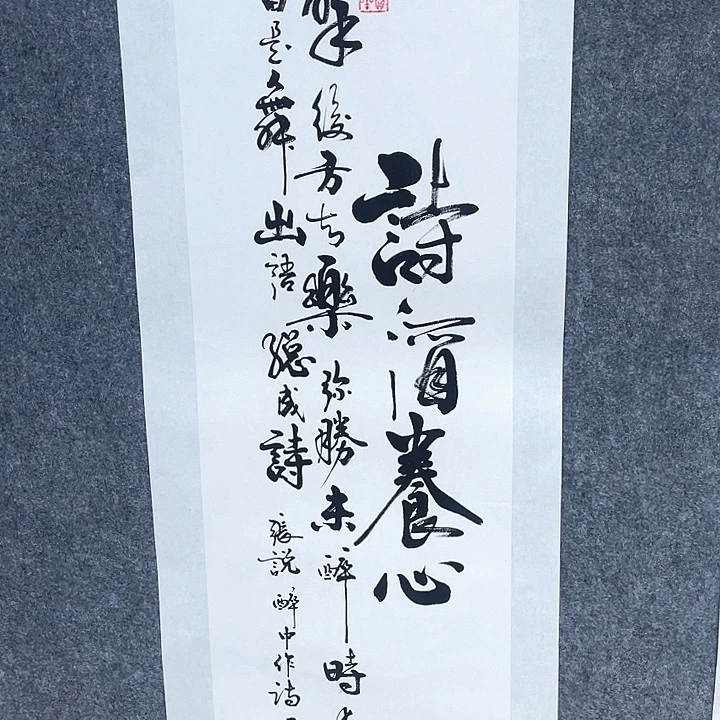 詩情養心
醉後方知樂弥勝未醉時
皆是舞出語總成詩
張説醉中作詩